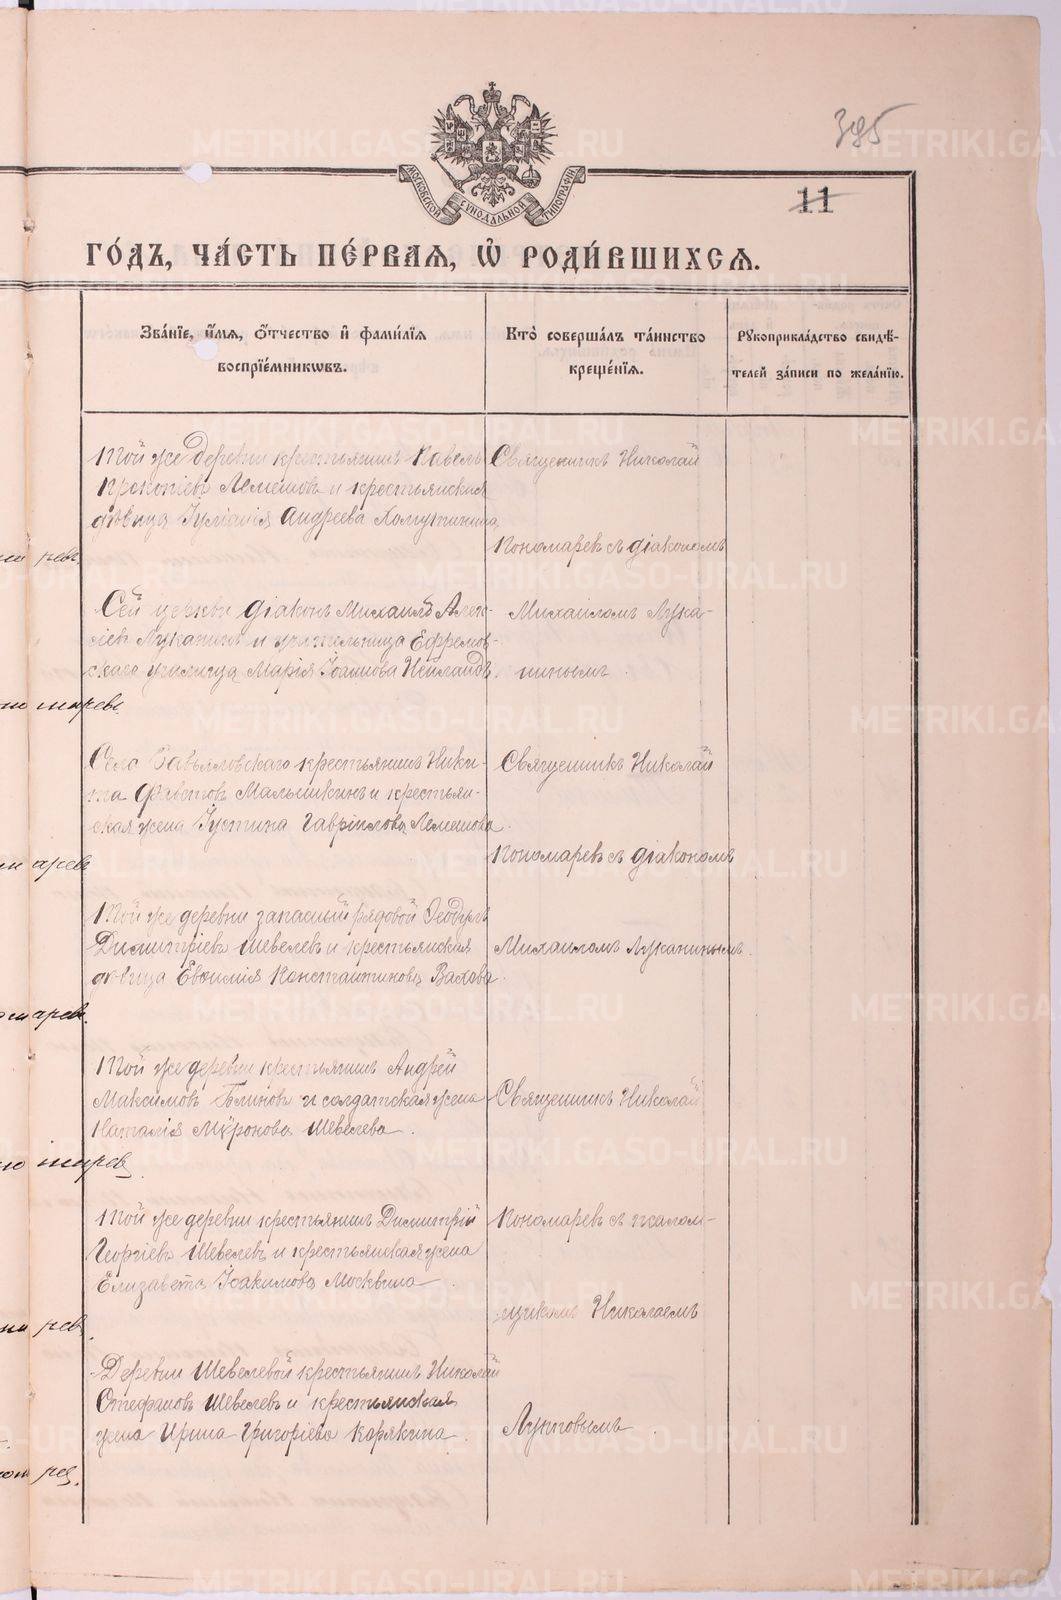 395
МОСКОВСКОЙ СѴНОДАЛЬНОЙ ТИПОГРАФІИ
11
ГО́ДЪ, ЧА́СТЬ ПЕ́РВАѦ, Ѡ҆ РОДИ́ВШИХСѦ.
Зва́нїе, и҆́мѧ, ѻ҆́тчество и҆ фами́лїѧ
воспрїе́мникѡвъ.
Кто̀ соверша́лъ та́инство
креще́нїѧ.
Рꙋкоприкла́дство свидѣ́-
телей за́писи по жела́нїю.
Той же деревни крестьянинъ Павелъ
Прокопіевъ Лемешовъ и крестьянская
дѣвица Іуліанія Андреева Хомутинина
Священникъ Николай
Пономаревъ съ діакономъ
Сей церкви діаконъ Михаилъ Алек-
сіевъ Луканинъ и учительница Ефремов-
скаго училища Марія Іоаннова Нейландъ.
Михаиломъ Лука-
нинымъ.
Села Завьяловскаго крестьянинъ Ники-
та Фавстовъ Малышкинъ и крестьян-
ская жена Іустина Гавріилова Лемешова.
Священникъ Николай
Пономаревъ съ діакономъ
Той же деревни запасный рядовой Ѳеодоръ
Димитріевъ Шевелевъ и крестьянская
дѣвица Евѳимія Константинова Вахова.
Михаиломъ Луканинымъ.
Той же деревни крестьянинъ Андрей
Максимовъ Блиновъ и солдатская жена
Наталія Мѵронова Шевелева.
Священникъ Николай
Той же деревни крестьянинъ Димитрій
Георгіевъ Шевелевъ и крестьянская жена
Елизавета Іоакимова Москвина.
Пономаревъ съ псалом-
щикомъ Николаемъ
Деревни Шевелевой крестьянинъ Николай
Стефановъ Шевелевъ и крестьянская
жена Ирина Григоріева Корякина.
Луппговымъ
METRIKI.GASO-URAL.RU